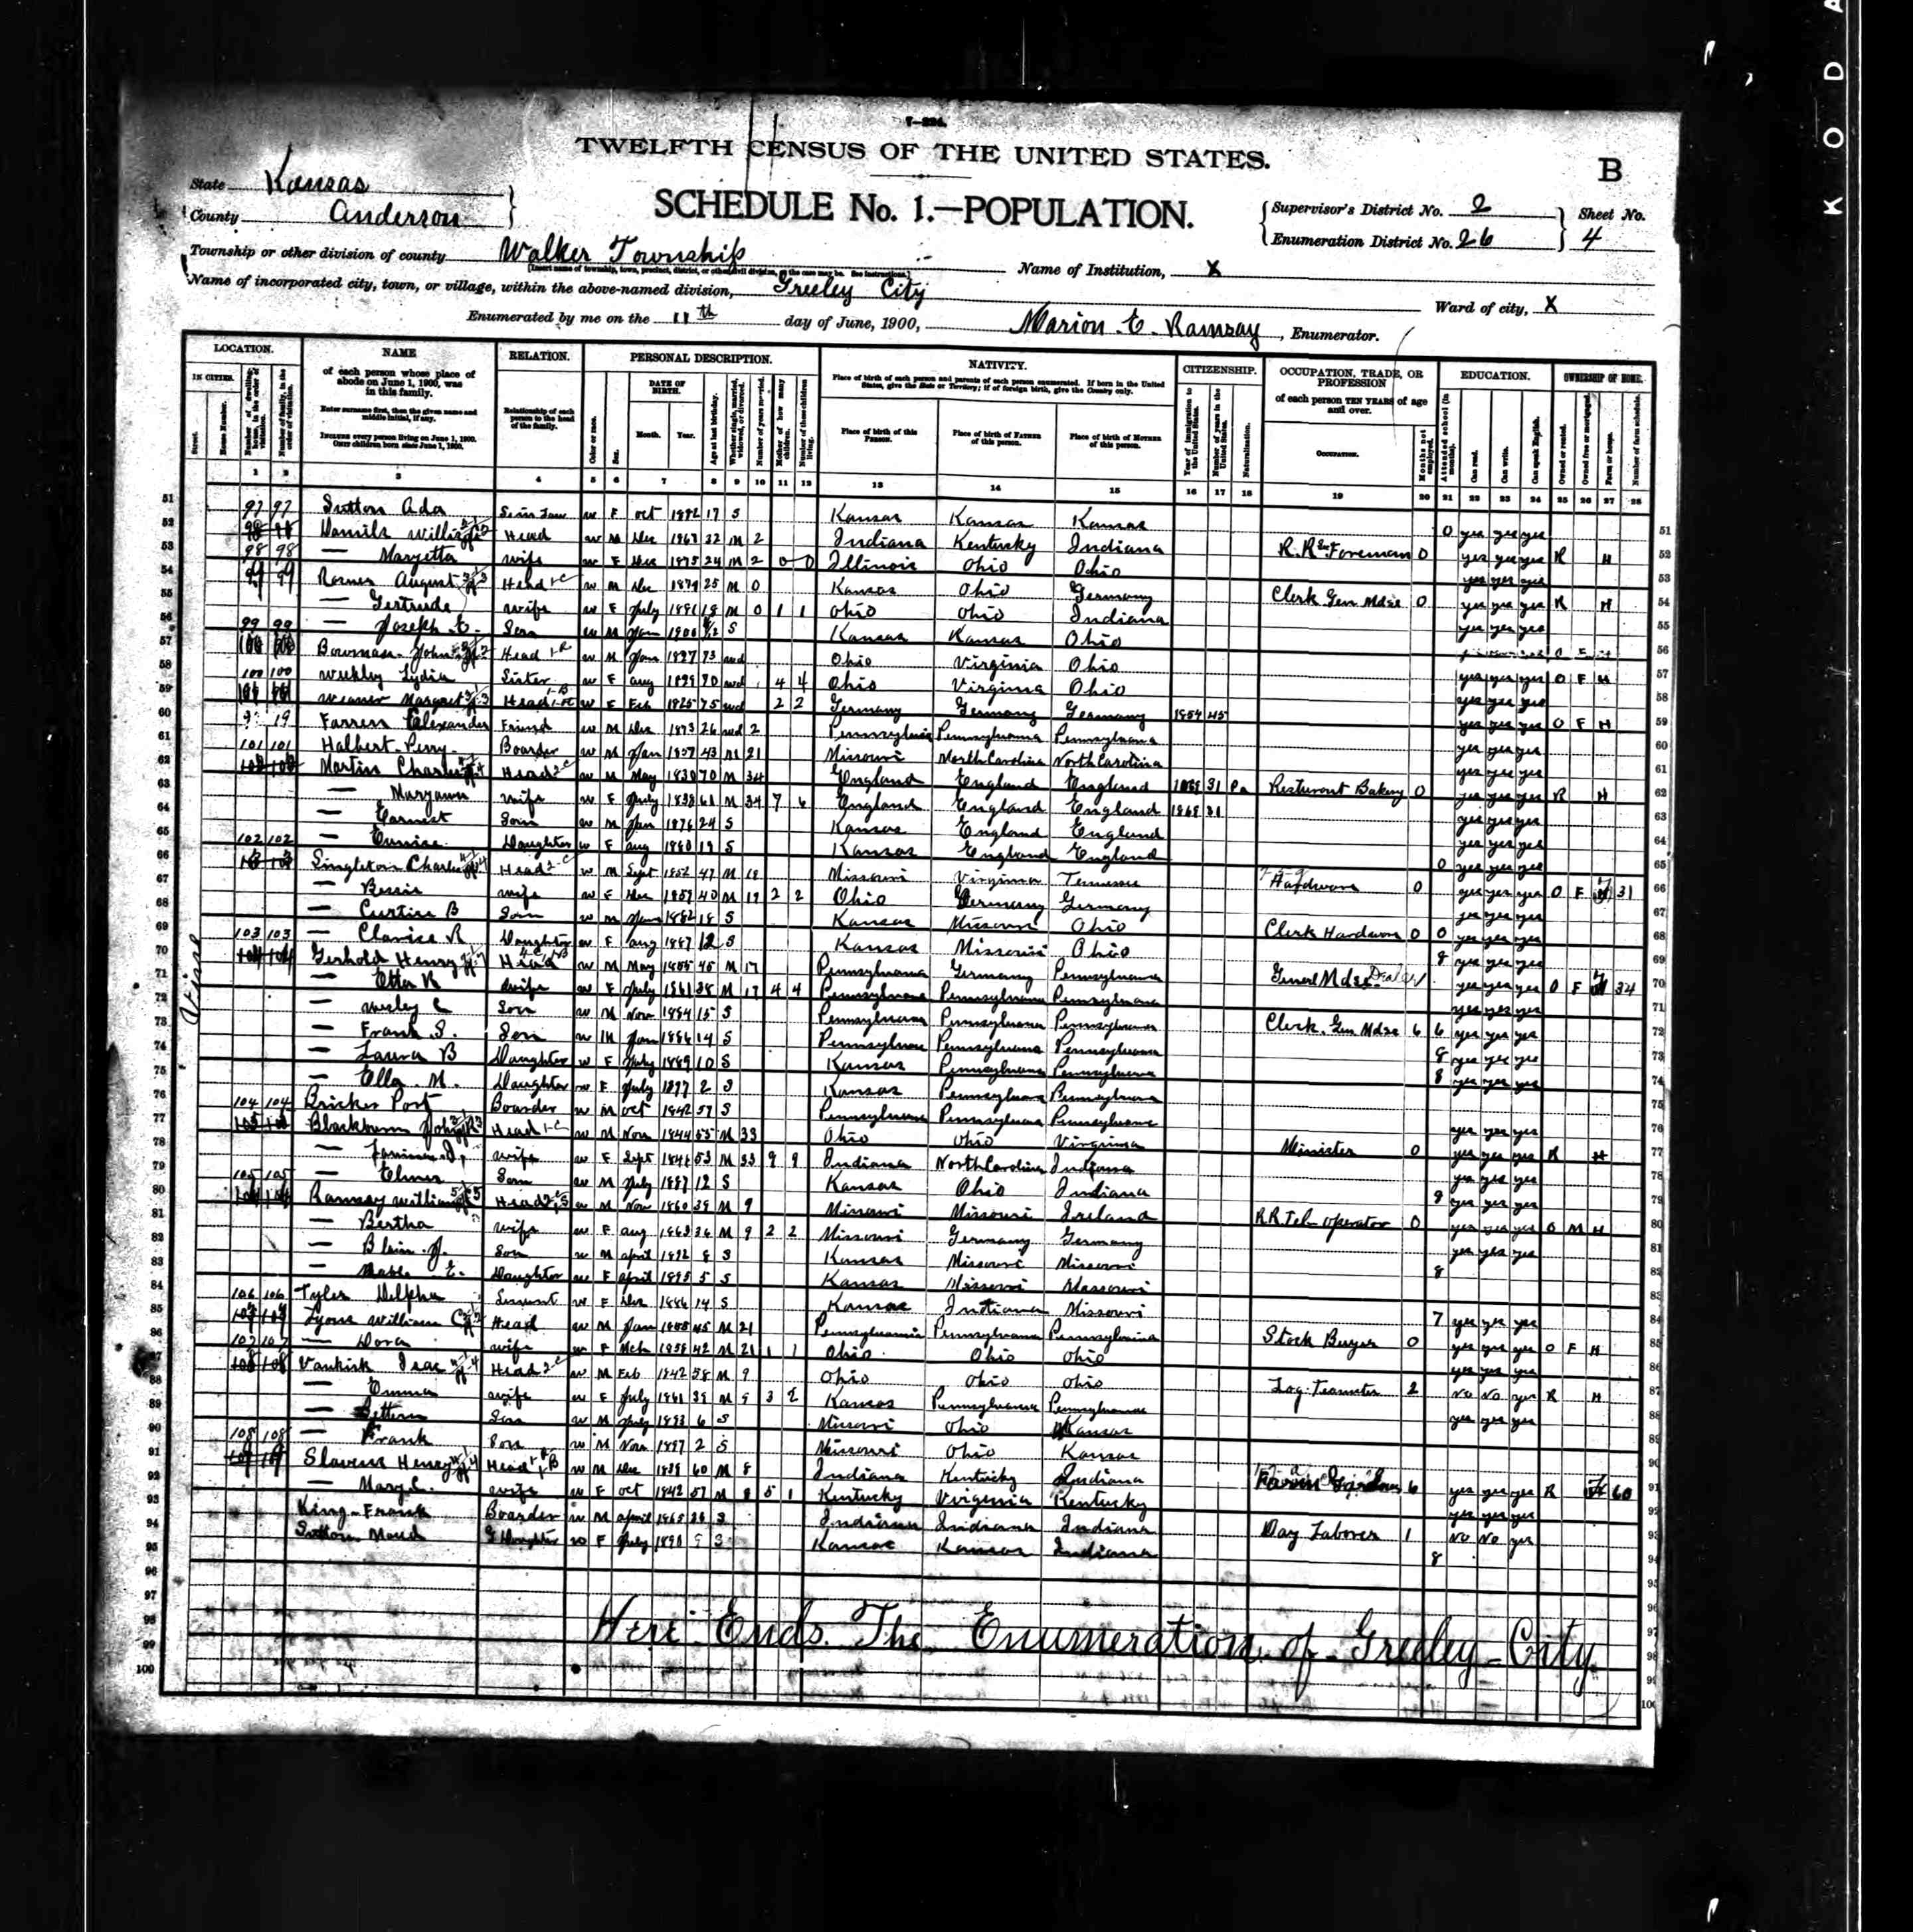 KODA
7-224.
TWELFTH CENSUS OF THE UNITED STATES.
B
State Kansas
County Anderson
SCHEDULE No. 1.—POPULATION.
Supervisor's District No. 2
Enumeration District No. 26
Sheet No.
4
Township or other division of county Walker Township
Name of Institution, X
Name of incorporated city, town, or village, within the above-named division, Greeley City
Ward of city, X
Enumerated by me on the 11th day of June, 1900, Marion E. Ramsay, Enumerator.
LOCATION. NAME RELATION. PERSONAL DESCRIPTION. NATIVITY. CITIZENSHIP. OCCUPATION, TRADE, OR PROFESSION EDUCATION. OWNERSHIP OF HOME.
IN CITIES. of each person whose place of abode on June 1, 1900, was in this family. DATE OF BIRTH. of each person TEN YEARS of age and over.
Street. House Number. Relationship of each person to the head of the family. Color or race. Sex. Month. Year. Age at last birthday. Place of birth of this Person. Place of birth of Father of this person. Place of birth of Mother of this person. Naturalization. Occupation. Can read. Can write. Can speak English. Owned or rented. Farm or house.
1 2 3 4 5 6 7 8 9 10 11 12 13 14 15 16 17 18 19 20 21 22 23 24 25 26 27 28
51 97 97 Sutton Ada w F Oct 1882 17 S Kansas Kansas Kansas 0 yes yes yes 51
52 Daniels Head w M Dec 1867 32 M 2 Indiana Kentucky Indiana R.R. Foreman 0 yes yes yes R H 52
53 98 98 — Maryetta wife w F Dec 1875 24 M 2 0 0 Illinois Ohio Ohio yes yes yes 53
54 August Head w M Dec 1874 25 M 0 Kansas Ohio Germany Clerk Gen Mdse 0 yes yes yes R H 54
55 — Gertrude wife w F July 1881 18 M 0 1 1 Ohio Ohio Indiana yes yes yes 55
56 99 99 — Joseph E. Son w M Jan 1900 S Kansas Kansas Ohio 56
57 Bowman John Head w M Jan 1827 73 wd Ohio Virginia Ohio yes yes yes O F H 57
58 100 100 Weekley Lydia Sister w F Aug 1829 70 wd 4 4 Ohio Virginia Ohio yes yes yes 58
59 Weaver Margret Head w F Feb 1825 75 wd 2 2 Germany Germany Germany 1854 45 yes yes yes O F H 59
60 Farren Alexander Friend w M Dec 1873 26 wd 2 Pennsylvania Pennsylvania Pennsylvania yes yes yes 60
61 101 101 Halbert Perry Boarder w M Jan 1857 43 M 21 Missouri North Carolina North Carolina yes yes yes 61
62 Martin Charles Head w M May 1830 70 M 34 England England England 31 Pa Resturont Bakery 0 yes yes yes R H 62
63 — Maryann wife w F July 1838 61 M 34 7 6 England England England 1868 31 yes yes yes 63
64 — Earnest Son w M Jan 1876 24 S Kansas England England yes yes yes 64
65 102 102 — Eunice Daughter w F Aug 1880 19 S Kansas England England 0 yes yes yes 65
66 Singleton Charles Head w M Sept 1852 47 M Missouri Virginia Hardware 0 yes yes yes O F 31 66
67 — Bessie wife w F Dec 1859 40 M 2 2 Ohio Germany Germany yes yes yes 67
68 — Curtise B Son w M Jan 1882 18 S Kansas Missouri Ohio Clerk Hardware 0 0 yes yes yes 68
69 103 103 — Clarice R Daughter w F Aug 1887 12 S Kansas Missouri Ohio 8 yes yes yes 69
70 Gerhold Henry Head w M May 1855 45 M 17 Pennsylvania Germany Pennsylvania Generl Mdse yes yes yes O F 34 70
71 — Etta K wife w F July 1861 38 M 17 4 4 Pennsylvania Pennsylvania Pennsylvania yes yes yes 71
72 — Wesley C Son w M Nov 1884 15 S Pennsylvania Pennsylvania Pennsylvania Clerk Gen Mdse 6 6 yes yes yes 72
73 — Frank S. Son w M Jan 1886 14 S Pennsylvania Pennsylvania Pennsylvania 8 yes yes yes 73
74 — Laura B Daughter w F July 1889 10 S Kansas Pennsylvania Pennsylvania 8 yes yes yes 74
75 — Ella M. Daughter w F July 1897 2 S Kansas Pennsylvania Pennsylvania 75
76 104 104 Bricker Port Boarder w M Oct 1842 57 S Pennsylvania Pennsylvania Pennsylvania yes yes yes 76
77 Blackburn John Head w M Nov 1844 55 M 33 Ohio Ohio Virginia Minister 0 yes yes yes R H 77
78 wife w F Sept 1846 53 M 33 9 9 Indiana North Carolina Indiana yes yes yes 78
79 105 105 — Elmer Son w M July 1887 12 S Kansas Ohio Indiana 8 yes yes yes 79
80 Ramsay William Head w M Nov 1860 39 M 9 Missouri Missouri Ireland R.R. Tel. operator 0 yes yes yes O M H 80
81 — Bertha wife w F Aug 1863 36 M 9 2 2 Missouri Germany Germany yes yes yes 81
82 — Blain J. Son w M April 1892 8 S Kansas Missouri Missouri 8 82
83 — Mable E. Daughter w F April 1895 5 S Kansas Missouri Missouri 83
84 106 106 Tyler Delpha Servent w F Dec 1886 14 S Kansas Indiana Missouri 7 yes yes yes 84
85 Lyons William C Head w M Jan 1855 45 M 21 Pennsylvania Pennsylvania Pennsylvania Stock Buyer 0 yes yes yes O F H 85
86 107 107 — Dora wife w F Mch 1858 42 M 21 1 1 Ohio Ohio Ohio yes yes yes 86
87 Vankirk Isac Head w M Feb 1842 58 M 9 Ohio Ohio Ohio Log Teamster 2 No No yes R H 87
88 — Emma wife w F July 1861 38 M 9 3 2 Kansas Pennsylvania Pennsylvania yes yes yes 88
89 Son w M July 1893 6 S Missouri Ohio Kansas 89
90 108 108 — Frank Son w M Nov 1897 2 S Missouri Ohio Kansas 90
91 Slavens Henry Head w M Dec 1839 60 M 8 Indiana Kentucky Indiana 6 yes yes yes R 60 91
92 — Mary C. wife w F Oct 1842 57 M 8 5 1 Kentucky Virginia Kentucky yes yes yes 92
93 King Frank Boarder w M April 1865 S Indiana Indiana Indiana Day Laborer 1 No No yes 93
94 Sutton Maud G Daughter w F July 1890 9 S Kansas Kansas Indiana 8 94
95
96
97
98
99
100
Here Ends The Enumeration of Greeley City